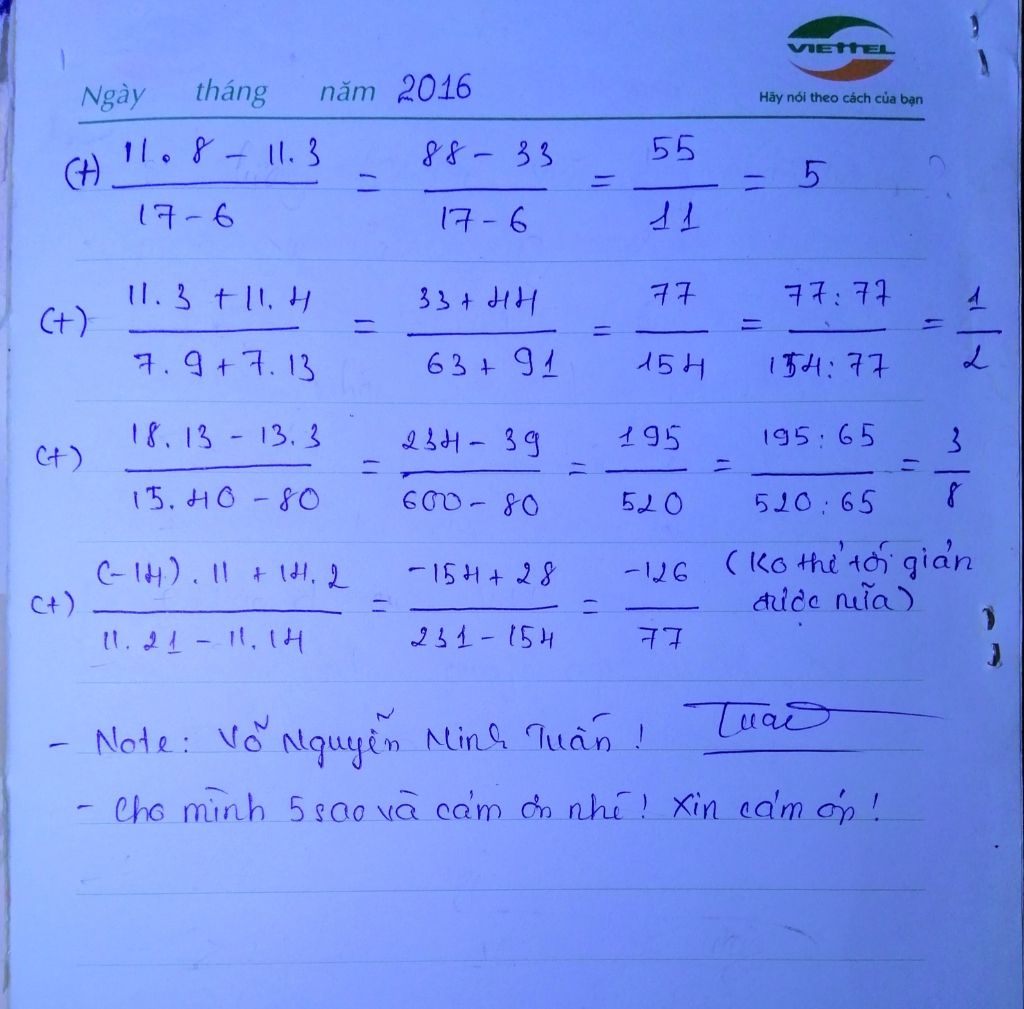 VIETTEL
Hãy nói theo cách của bạn
Ngày tháng năm 2016
(+) (11.8 - 11.3)/(17 - 6) = (88 - 33)/(17 - 6) = 55/11 = 5
(+) (11.3 + 11.4)/(7.9 + 7.13) = (33 + 44)/(63 + 91) = 77/154 = (77:77)/(154:77) = 1/2
(+) (18.13 - 13.3)/(15.40 - 80) = (234 - 39)/(600 - 80) = 195/520 = (195:65)/(520:65) = 3/8
(+) ((-14).11 + 14.2)/(11.21 - 11.14) = (-154 + 28)/(231 - 154) = -126/77 (Ko thể tối giản
được nữa)
- Note: Võ Nguyễn Minh Tuấn! Tuấn
- Cho mình 5 sao và cảm ơn nhé! Xin cảm ơn!